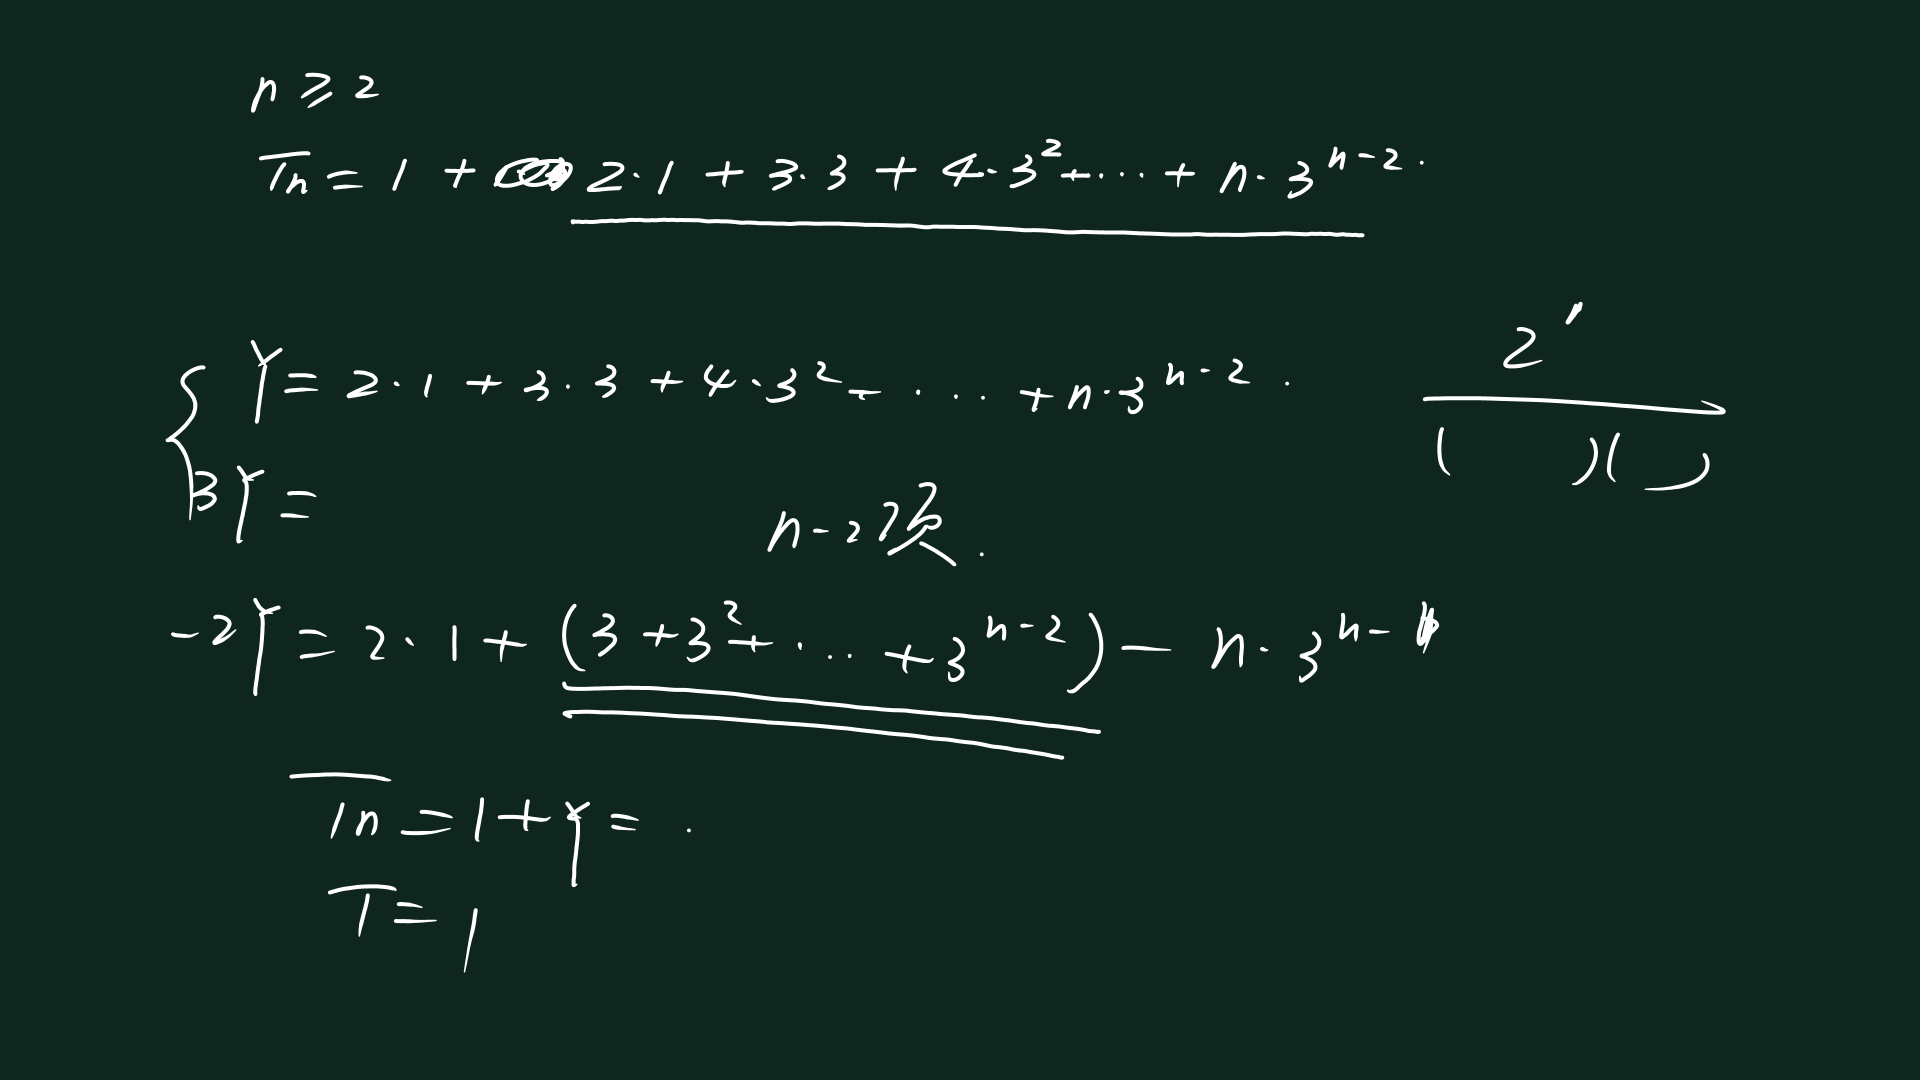 n ≥ 2
Tn = 1 + 2·1 + 3·3 + 4·3² + ··· + n·3ⁿ⁻².
Y = 2·1 + 3·3 + 4·3² + ··· + n·3ⁿ⁻².
3Y =
2'
( )( )
n-2项.
-2Y = 2·1 + (3 + 3² + ··· + 3ⁿ⁻²) - n·3ⁿ⁻¹
Tn = 1 + Y = .
T = 1